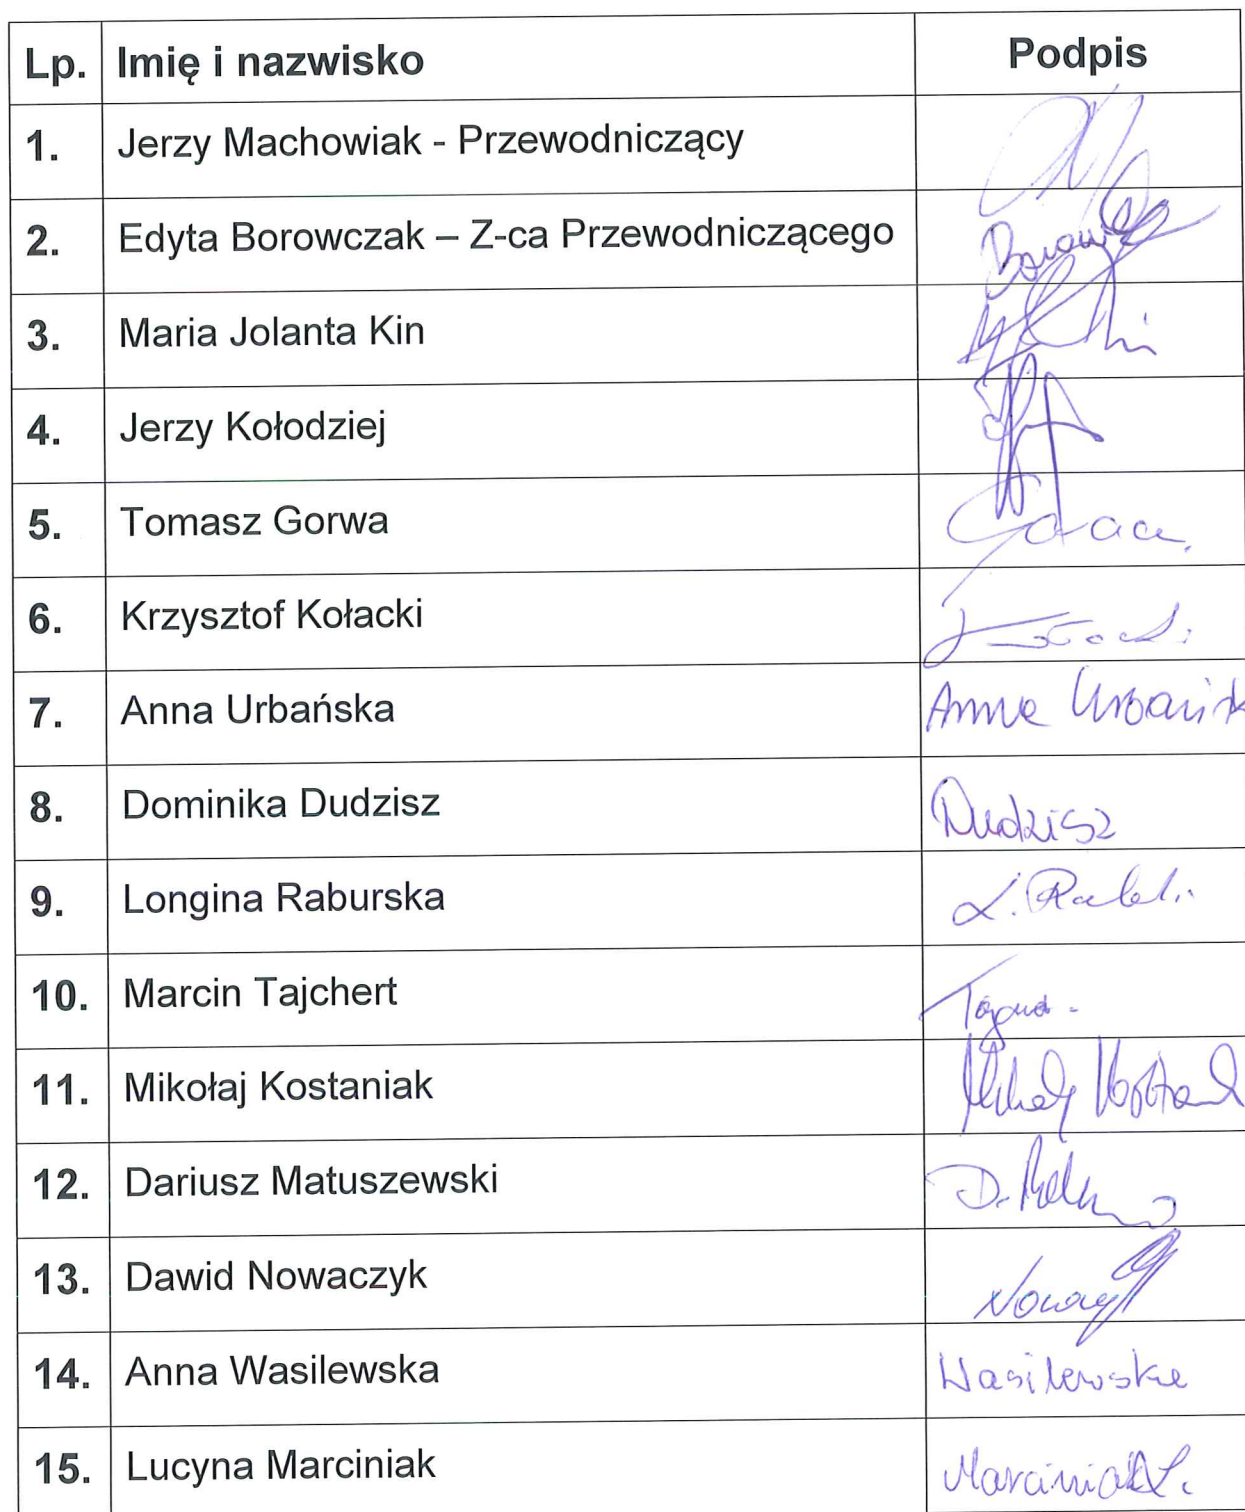 Lp. Imię i nazwisko Podpis
1. Jerzy Machowiak - Przewodniczący
2. Edyta Borowczak – Z-ca Przewodniczącego
3. Maria Jolanta Kin
4. Jerzy Kołodziej
5. Tomasz Gorwa
6. Krzysztof Kołacki
7. Anna Urbańska Anna
8. Dominika Dudzisz Dudzisz
9. Longina Raburska
10. Marcin Tajchert
11. Mikołaj Kostaniak
12. Dariusz Matuszewski
13. Dawid Nowaczyk
14. Anna Wasilewska Wasilewska
15. Lucyna Marciniak Marciniak L.